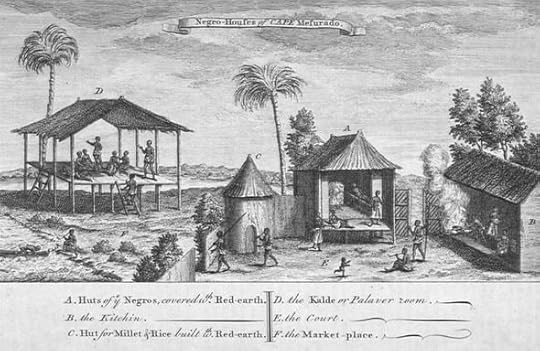 Negro-Houses of CAPE Mesurado.
D
A
C
B
E
F
A. Huts of yͤ Negros, covered wᵗʰ. Red-earth.
B. the Kitchin.
C. Hut for Millet & Rice built wᵗʰ. Red-earth.
D. the Kalde or Palaver room.
E. the Court.
F. the Market-place.